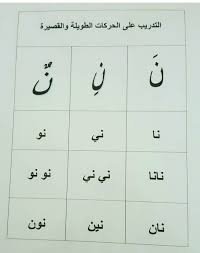 التدريب على الحركات الطويلة والقصيرة
نَ نِ نٌ
نا ني نو
نانا ني ني نو نو
نان نين نون